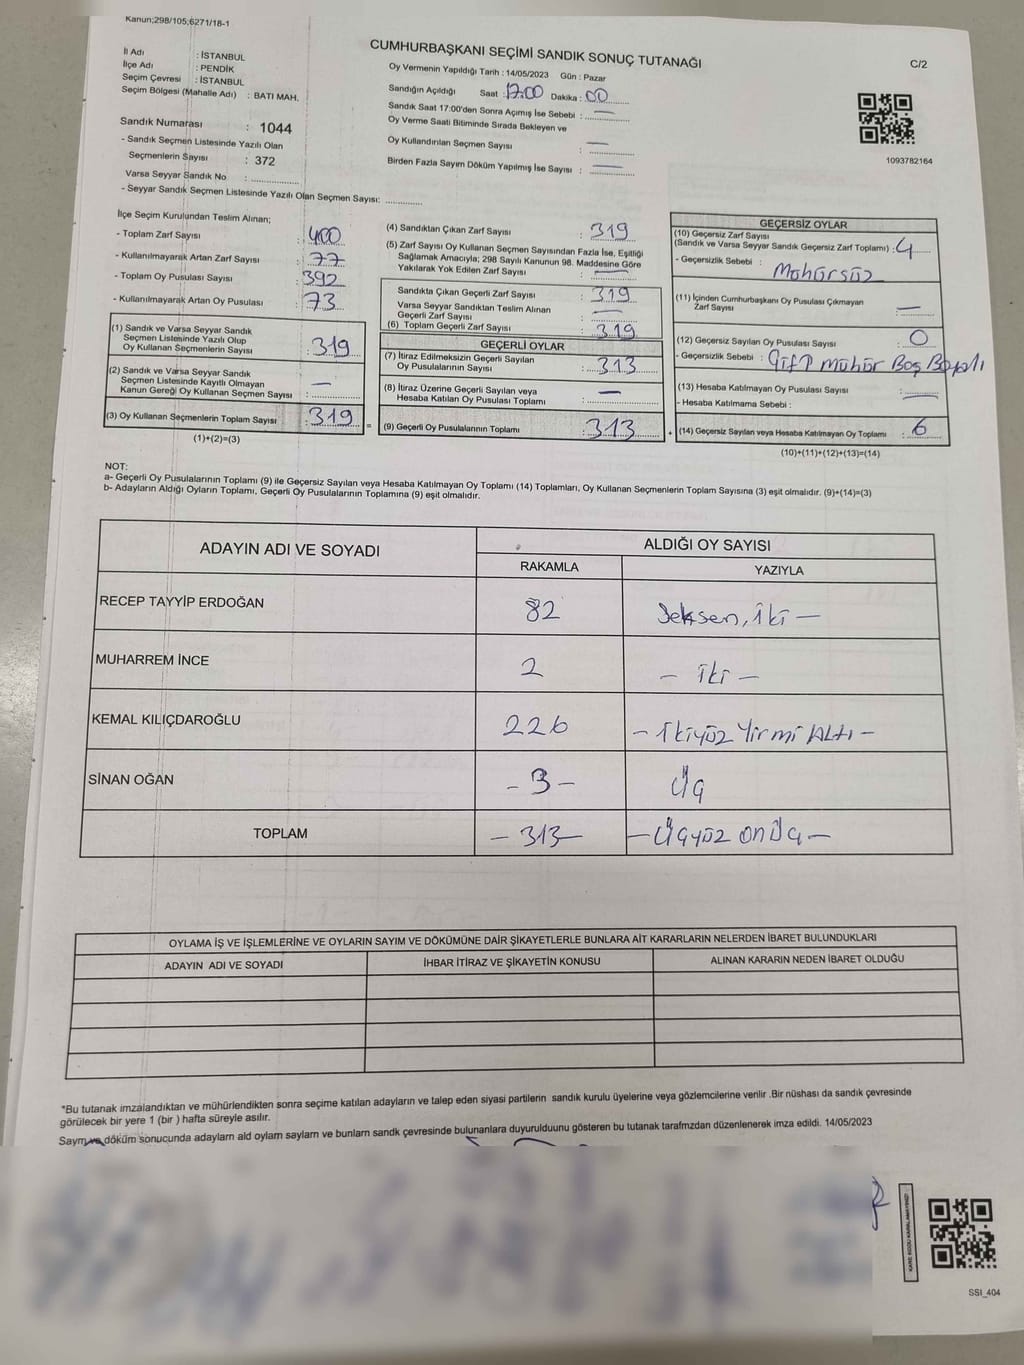 Kanun;298/105,6271/18-1
CUMHURBAŞKANI SEÇİMİ SANDIK SONUÇ TUTANAĞI
C/2
İl Adı : İSTANBUL
İlçe Adı : PENDİK
Seçim Çevresi : İSTANBUL
Seçim Bölgesi (Mahalle Adı) : BATI MAH.
Sandık Numarası : 1044
- Sandık Seçmen Listesinde Yazılı Olan
Seçmenlerin Sayısı : 372
Varsa Seyyar Sandık No :
- Seyyar Sandık Seçmen Listesinde Yazılı Olan Seçmen Sayısı:
Oy Vermenin Yapıldığı Tarih : 14/05/2023 Gün : Pazar
Sandığın Açıldığı Saat : 17:00 Dakika : 00
Sandık Saat 17:00'den Sonra Açımış İse Sebebi : —
Oy Verme Saati Bitiminde Sırada Bekleyen ve
Oy Kullandırılan Seçmen Sayısı : —
Birden Fazla Sayım Döküm Yapılmış İse Sayısı : —
1093782164
İlçe Seçim Kurulundan Teslim Alınan;
- Toplam Zarf Sayısı : 400
- Kullanılmayarak Artan Zarf Sayısı : 77
- Toplam Oy Pusulası Sayısı : 392
- Kullanılmayarak Artan Oy Pusulası : 73
(1) Sandık ve Varsa Seyyar Sandık
Seçmen Listesinde Yazılı Olup
Oy Kullanan Seçmenlerin Sayısı : 319
(2) Sandık ve Varsa Seyyar Sandık
Seçmen Listesinde Kayıtlı Olmayan
Kanun Gereği Oy Kullanan Seçmen Sayısı : —
(3) Oy Kullanan Seçmenlerin Toplam Sayısı : 319
(1)+(2)=(3)
=
(4) Sandıktan Çıkan Zarf Sayısı : 319
(5) Zarf Sayısı Oy Kullanan Seçmen Sayısından Fazla İse, Eşitliği
Sağlamak Amacıyla; 298 Sayılı Kanunun 98. Maddesine Göre
Yakılarak Yok Edilen Zarf Sayısı : —
Sandıkta Çıkan Geçerli Zarf Sayısı : 319
Varsa Seyyar Sandıktan Teslim Alınan
Geçerli Zarf Sayısı : —
(6) Toplam Geçerli Zarf Sayısı : 319
GEÇERLİ OYLAR
(7) İtiraz Edilmeksizin Geçerli Sayılan
Oy Pusulalarının Sayısı : 313
(8) İtiraz Üzerine Geçerli Sayılan veya
Hesaba Katılan Oy Pusulası Toplamı : —
(9) Geçerli Oy Pusulalarının Toplamı : 313
+
GEÇERSİZ OYLAR
(10) Geçersiz Zarf Sayısı
(Sandık ve Varsa Seyyar Sandık Geçersiz Zarf Toplamı) : 4
- Geçersizlik Sebebi : Mühürsüz
(11) İçinden Cumhurbaşkanı Oy Pusulası Çıkmayan
Zarf Sayısı : —
(12) Geçersiz Sayılan Oy Pusulası Sayısı : 0
- Geçersizlik Sebebi : Çift mühür Boş
(13) Hesaba Katılmayan Oy Pusulası Sayısı : —
- Hesaba Katılmama Sebebi :
(14) Geçersiz Sayılan veya Hesaba Katılmayan Oy Toplamı : 6
(10)+(11)+(12)+(13)=(14)
NOT:
a- Geçerli Oy Pusulalarının Toplamı (9) ile Geçersiz Sayılan veya Hesaba Katılmayan Oy Toplamı (14) Toplamları, Oy Kullanan Seçmenlerin Toplam Sayısına (3) eşit olmalıdır. (9)+(14)=(3)
b- Adayların Aldığı Oyların Toplamı, Geçerli Oy Pusulalarının Toplamına (9) eşit olmalıdır.
ADAYIN ADI VE SOYADI ALDIĞI OY SAYISI
RAKAMLA YAZIYLA
RECEP TAYYİP ERDOĞAN 82 Seksen, iki —
MUHARREM İNCE 2 — iki —
KEMAL KILIÇDAROĞLU 226 — ikiyüz Yirmi ALTI —
SİNAN OĞAN - 3 - Üç
TOPLAM — 313 — — Üçyüz on Üç —
OYLAMA İŞ VE İŞLEMLERİNE VE OYLARIN SAYIM VE DÖKÜMÜNE DAİR ŞİKAYETLERLE BUNLARA AİT KARARLARIN NELERDEN İBARET BULUNDUKLARI
ADAYIN ADI VE SOYADI İHBAR İTİRAZ VE ŞİKAYETİN KONUSU ALINAN KARARIN NEDEN İBARET OLDUĞU
*Bu tutanak imzalandıktan ve mühürlendikten sonra seçime katılan adayların ve talep eden siyasi partilerin sandık kurulu üyelerine veya gözlemcilerine verilir .Bir nüshası da sandık çevresinde
görülecek bir yere 1 (bir ) hafta süreyle asılır.
Saym ve döküm sonucunda adaylarn ald oylarn saylarn ve bunlarn sandk çevresinde bulunanlara duyurulduunu gösteren bu tutanak tarafmzdan düzenlenerek imza edildi. 14/05/2023
SSI_404